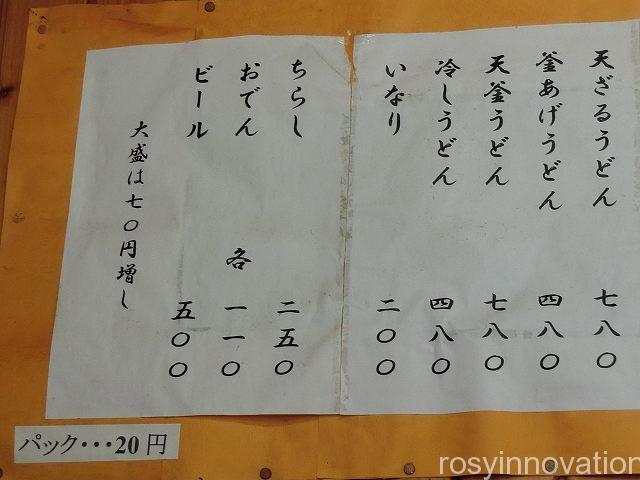 天ざるうどん 七八〇
釜あげうどん 四八〇
天釜うどん 七八〇
冷しうどん 四八〇
いなり 二〇〇
ちらし 二五〇
おでん 各 一一〇
ビール 五〇〇
大盛は七〇円増し
パック・・・20円
rosyinnovation